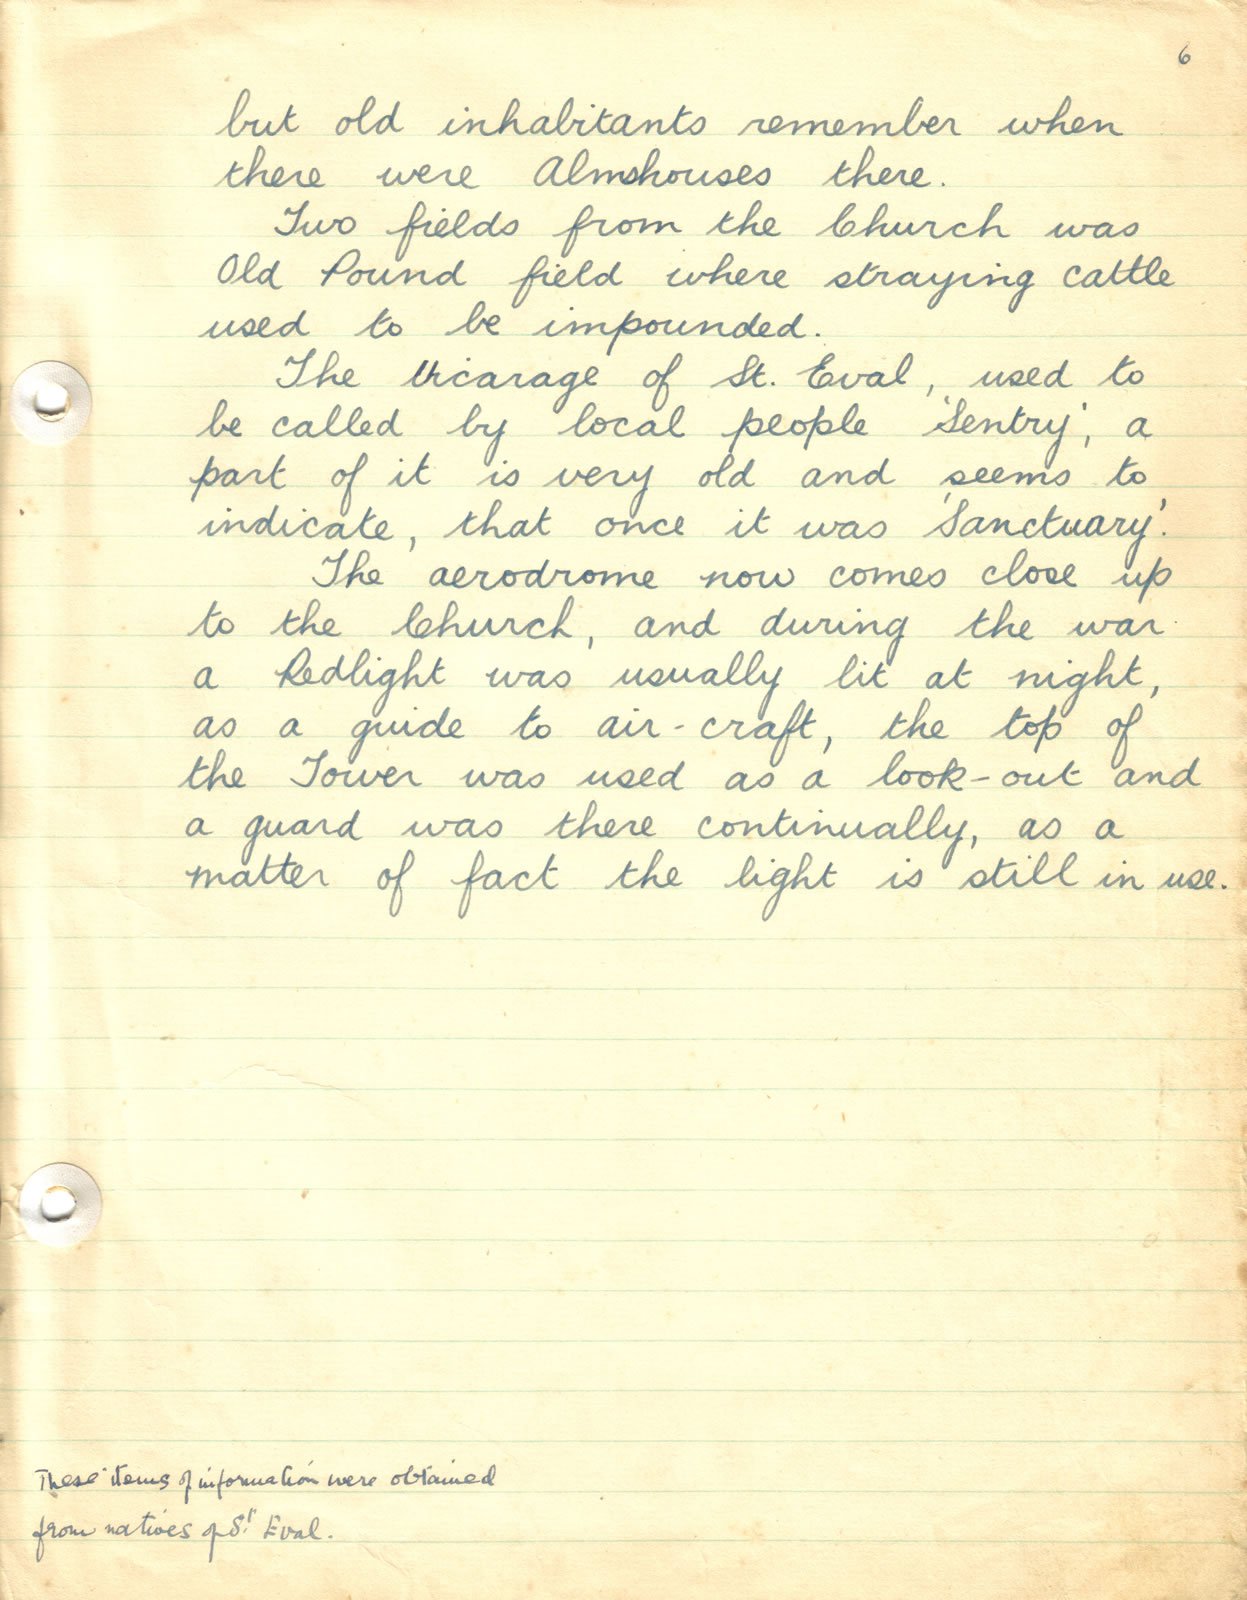 6
but old inhabitants remember when
there were Almshouses there.
Two fields from the Church was
Old Pound field where straying cattle
used to be impounded.
The Vicarage of St. Eval, used to
be called by local people 'Sentry', a
part of it is very old and seems to
indicate, that once it was 'Sanctuary'.
The aerodrome now comes close up
to the Church, and during the war
a Redlight was usually lit at night,
as a guide to air-craft, the top of
the Tower was used as a look-out and
a guard was there continually, as a
matter of fact the light is still in use.
These items of information were obtained
from natives of St Eval.